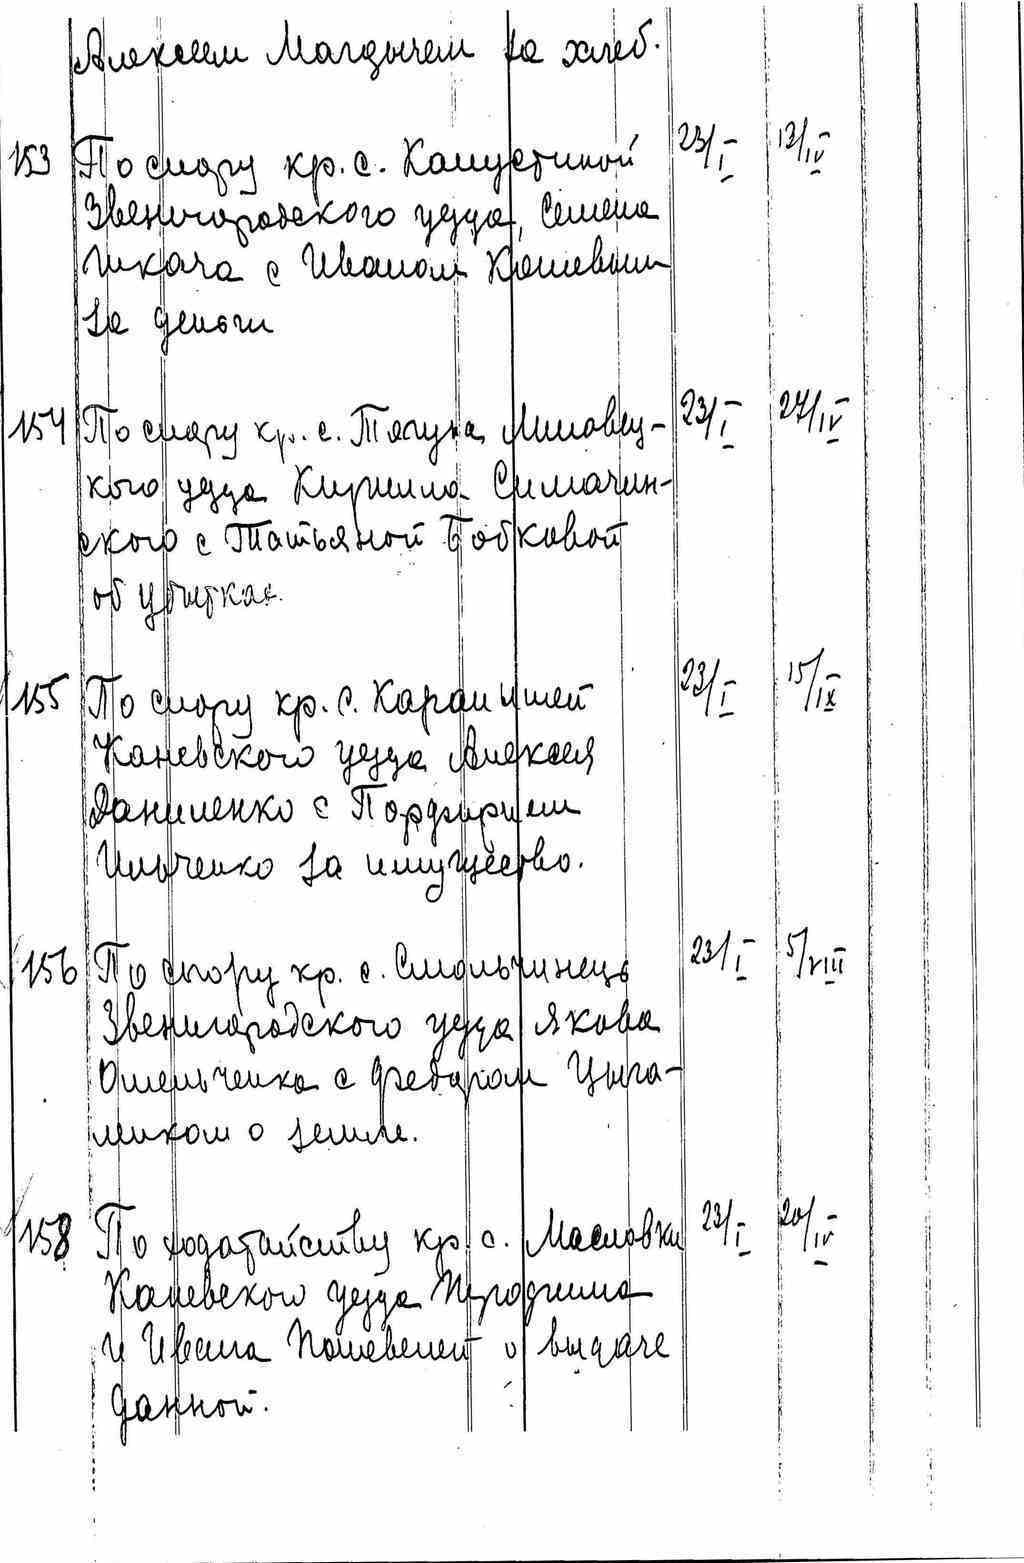 Алексеем Магдычем за хлеб.
153 По спору кр. с. Капустиной 23/I 13/IV
Звенигородского уезда, Семена
Ткача с Иваном Кошевым
за деньги
154 По спору кр. с. Тагуна, Липовец- 23/I 27/IV
кого уезда Кирилла Симачин-
ского с Татьяной Бобковой
об убытках.
155 По спору кр. с. Карапышей 23/I 15/IX
Каневского уезда Алексея
Даниленко с Порфирием
Ильченко за имущество.
156 По спору кр. с. Смольчинець 23/I 5/VIII
Звенигородского уезда Якова
Омельченка с Федором Цыга-
ликом о земле.
158 По ходатайству кр. с. Масловки 23/I 20/IV
Каневского уезда
и Ивана Кошевелей о выдаче
данной.